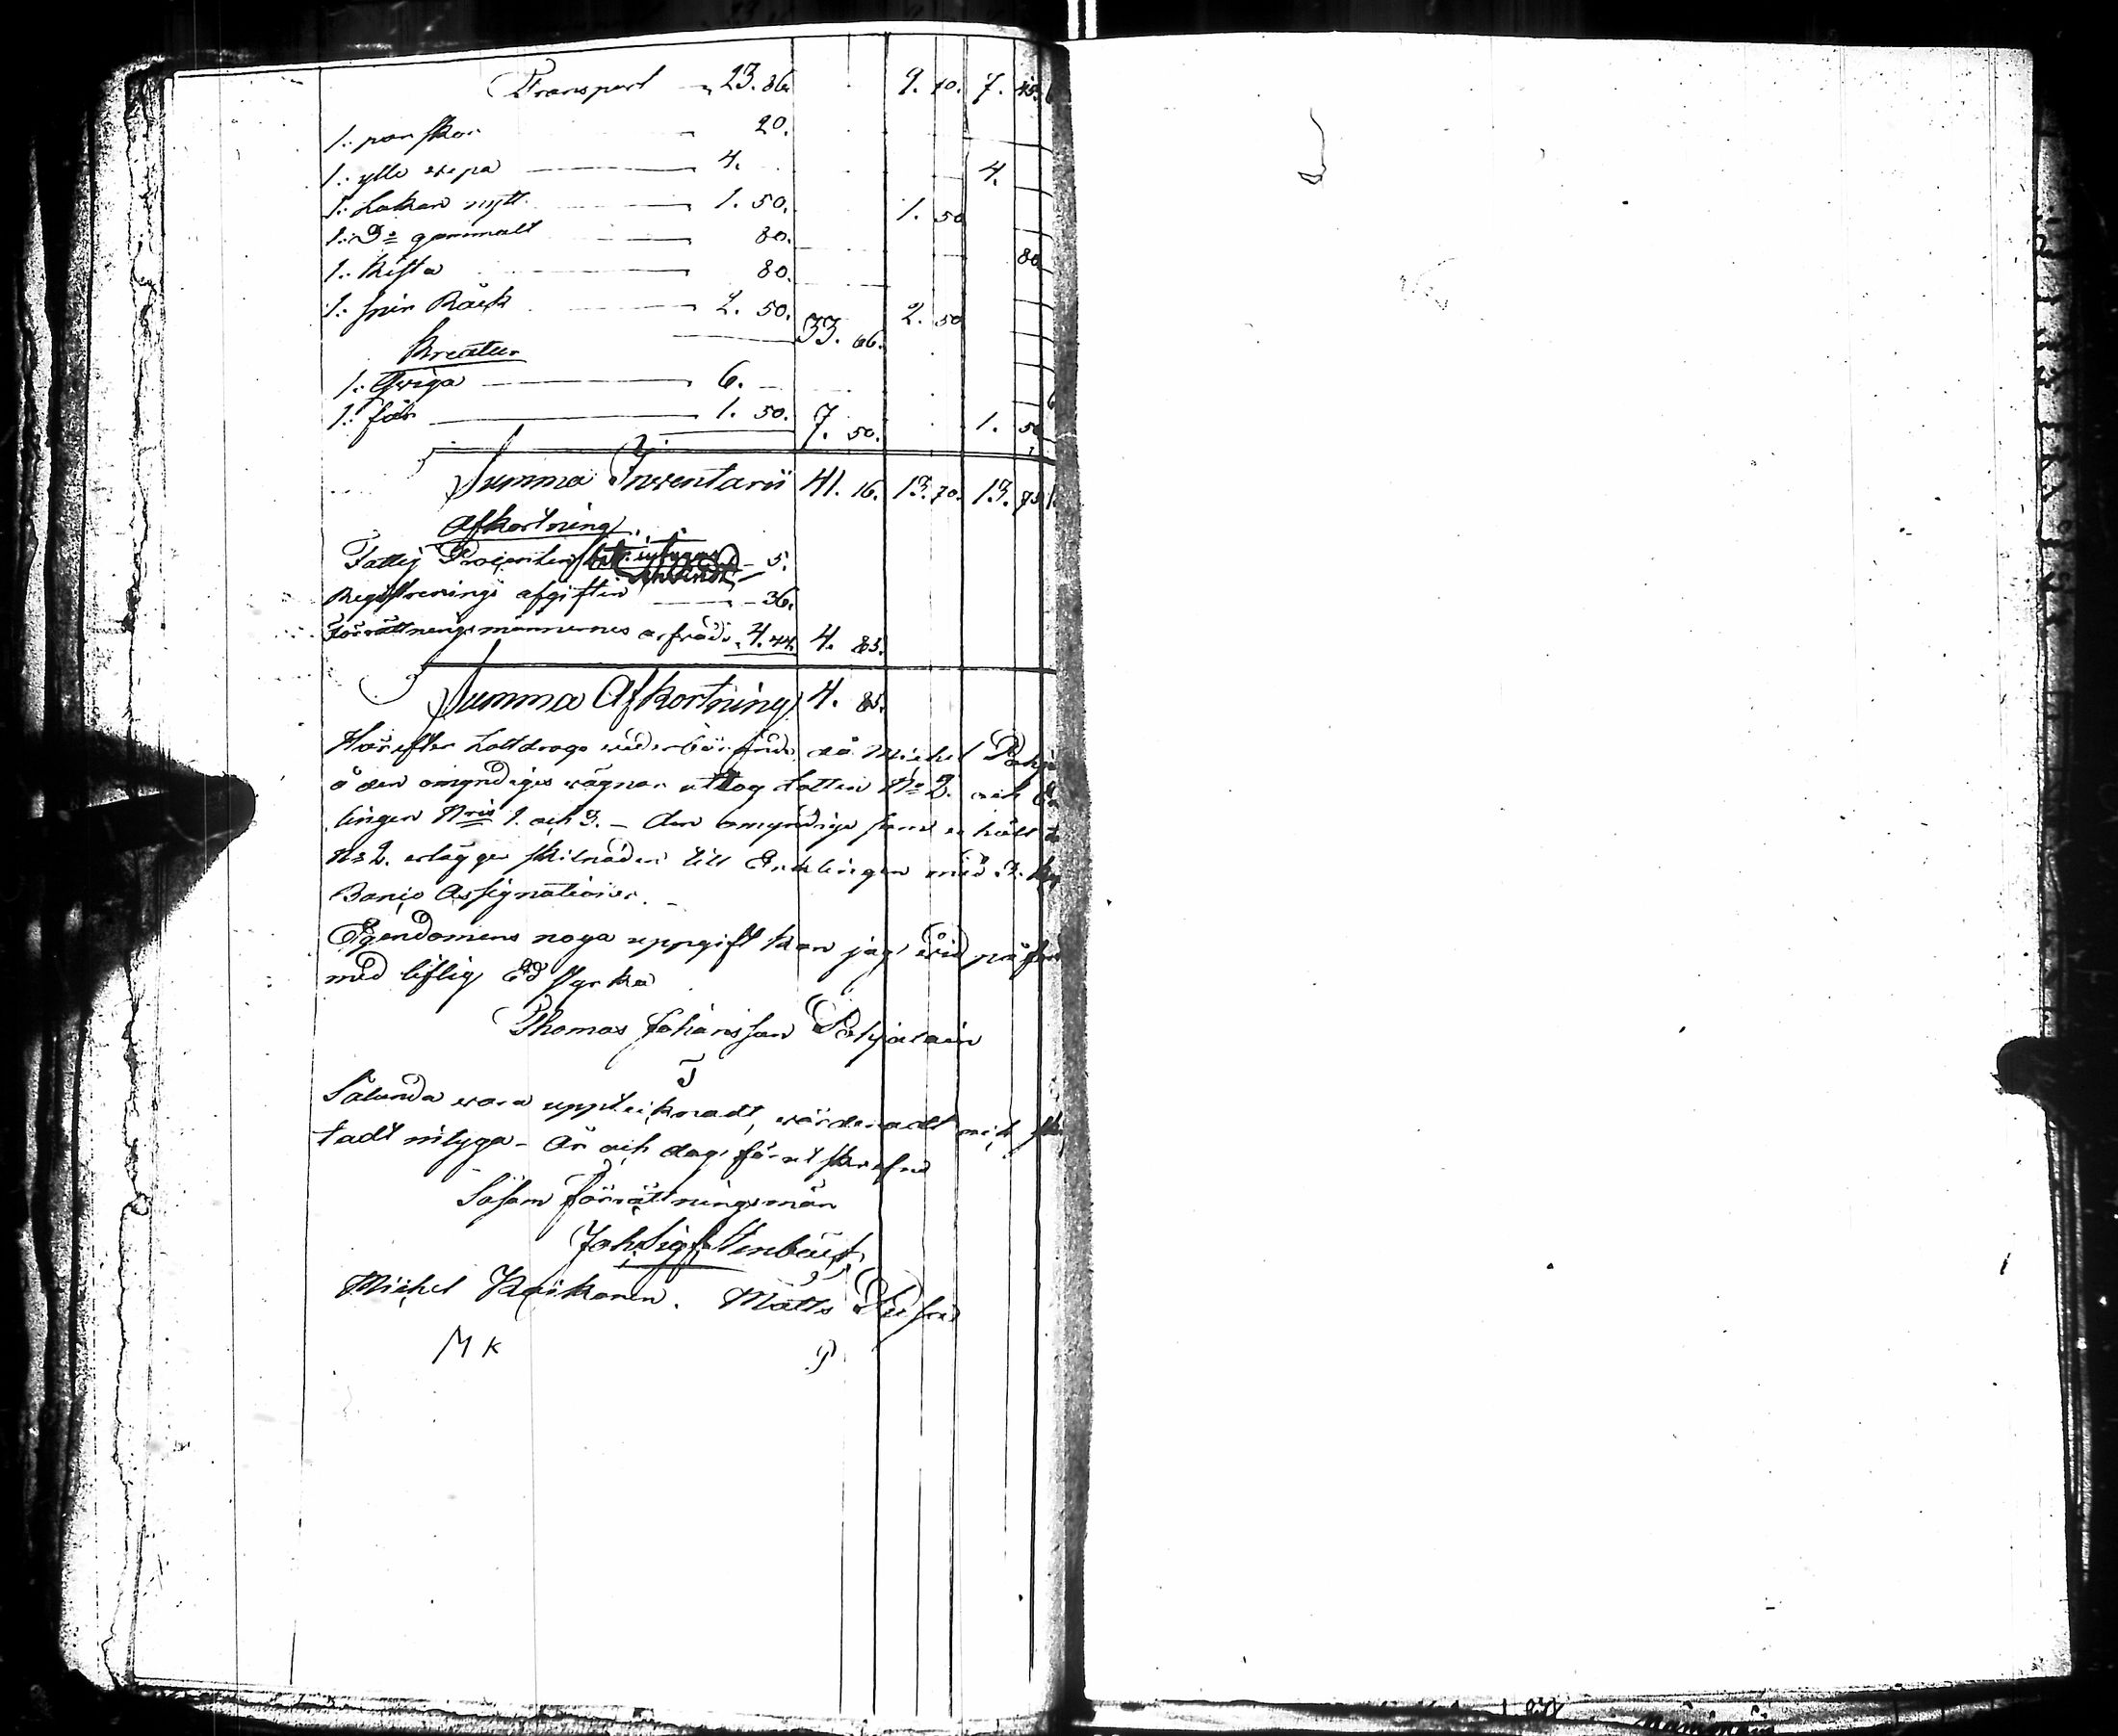 Transport 23. 86. 9. 70. 7. 45.
1: par skor 20.
1: ylle wepa 4. 4.
1: Lakan nytt 1. 50. 1. 50
1: D:o gammalt 80.
1: Kista 80. 80
1: spin Råck 2. 50. 33. 66. 2. 50
Kreatur
1: Qwiga 6.
1: får 1. 50. 7. 50. 1. 50
Summa Inventarii 41. 16. 13. 70. 13. 75
Afkortning
Fattig Procenten 5.
Registrerings afgiften 36.
Förrättningsmännernes arfvode 4. 44. 4. 85.
Summa Afkortning 4. 85.
Härefter Lottdrogo wederbörande, då Michel
å den omyndiges wägnar uttog Lotten N:o 2. och
lingen N:ris 1. och 3. – den omyndige som erhållit
N:o 2. erlägger skilnaden till Enklingen med 3.
Banco Assignationer. –
Egendomens noga uppgift kan jag wid
med liflig Ed styrka
Thomas Johansson Pohjalain
T
Sålunda wara upptecknadt, wärderadt och
tadt intyga – År och dag förut skrefne
Såsom Förrättningsmän
Joh. Sigf. Stenbäck
Michel Kaikonen. Matts
M K P